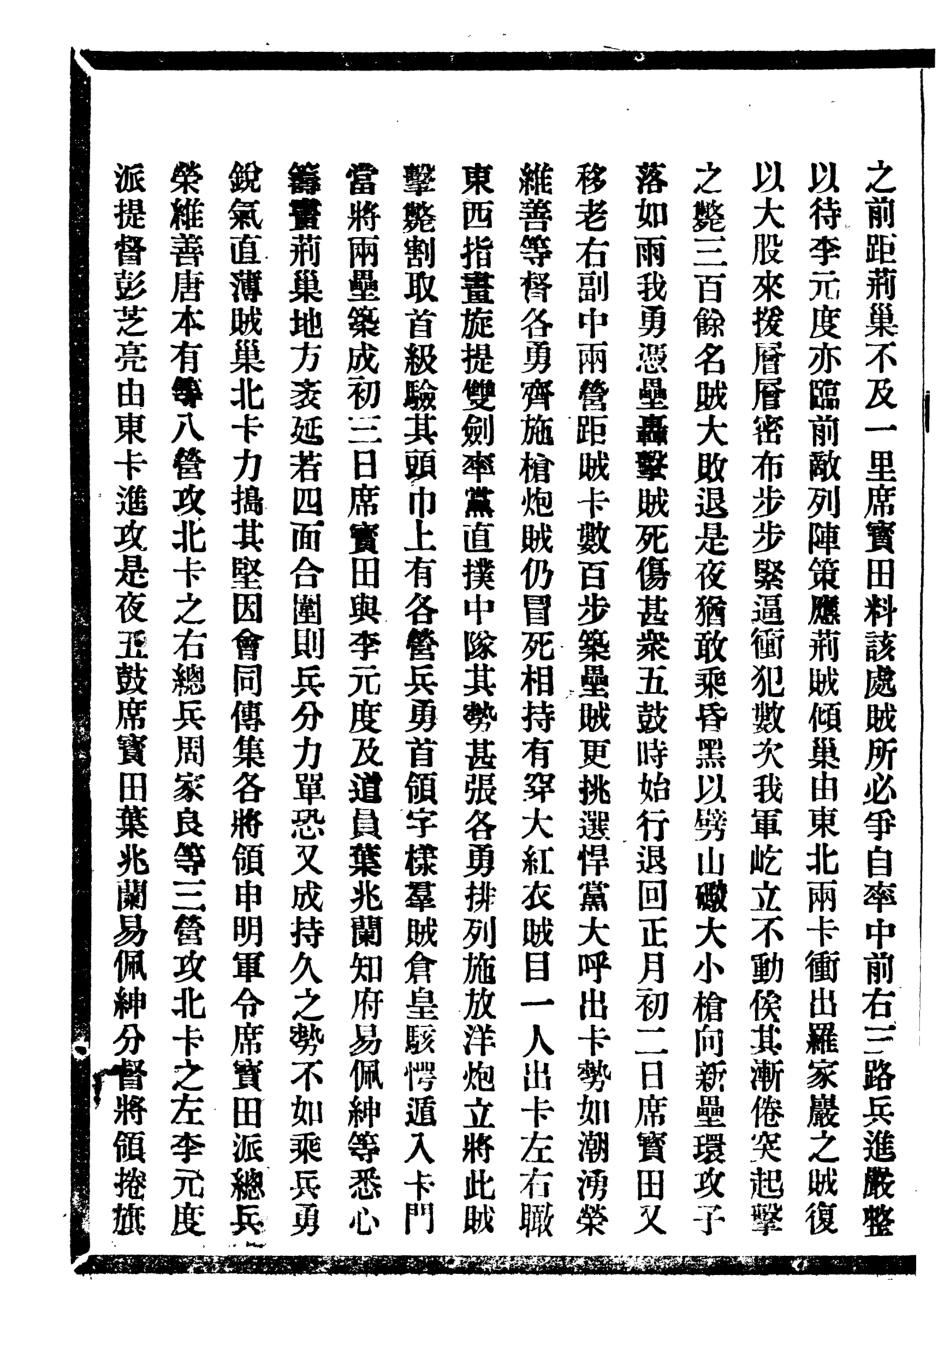 之前距荊巢不及一里席寶田料該處賊所必爭自率中前右三路兵進嚴整
以待李元度亦臨前敵列陣策應荊賊傾巢由東北兩卡衝出羅家巖之賊復
以大股來援層層密布步步緊逼衝犯數次我軍屹立不動俟其漸倦突起擊
之斃三百餘名賊大敗退是夜猶敢乘昏黑以劈山礮大小槍向新壘環攻子
落如雨我勇憑壘轟擊賊死傷甚衆五鼓時始行退回正月初二日席寶田又
移老右副中兩營距賊卡數百步築壘賊更挑選悍黨大呼出卡勢如潮湧榮
維善等督各勇齊施槍炮賊仍冒死相持有穿大紅衣賊目一人出卡左右瞰
東西指畫旋提雙劍率黨直撲中隊其勢甚張各勇排列施放洋炮立將此賊
擊斃割取首級驗其頭巾上有各營兵勇首領字樣羣賊倉皇駭愕遁入卡門
當將兩壘築成初三日席寶田與李元度及道員葉兆蘭知府易佩紳等悉心
籌畫荊巢地方袤延若四面合圍則兵分力單恐又成持久之勢不如乘兵勇
銳氣直薄賊巢北卡力搗其堅因會同傳集各將領申明軍令席寶田派總兵
榮維善唐本有等八營攻北卡之右總兵周家良等三營攻北卡之左李元度
派提督彭芝亮由東卡進攻是夜五鼓席寶田葉兆蘭易佩紳分督將領捲旗